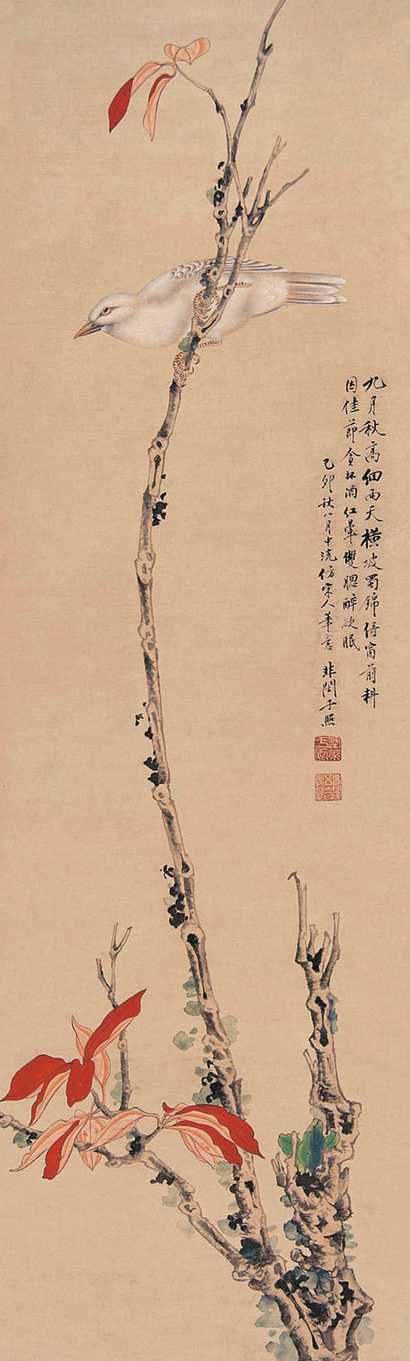 九月秋高细雨天横坡蜀锦倚窗前料
因佳节贪杯酒红晕双腮醉欲眠
乙卯秋八月中浣仿宋人笔意 非闇于照